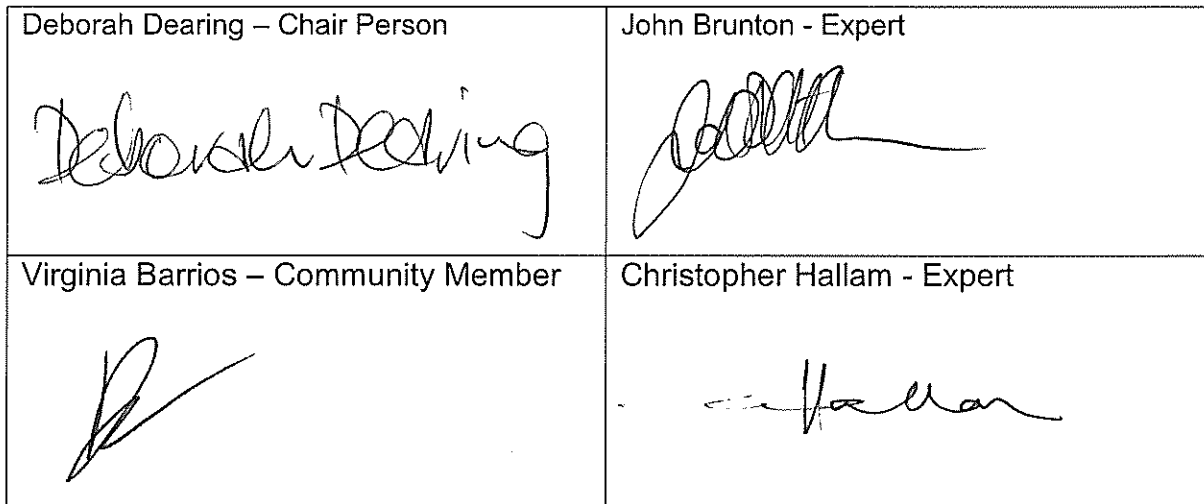 Deborah Dearing – Chair Person
Deborah Dearing
John Brunton - Expert
Virginia Barrios – Community Member
Christopher Hallam - Expert
Hallam